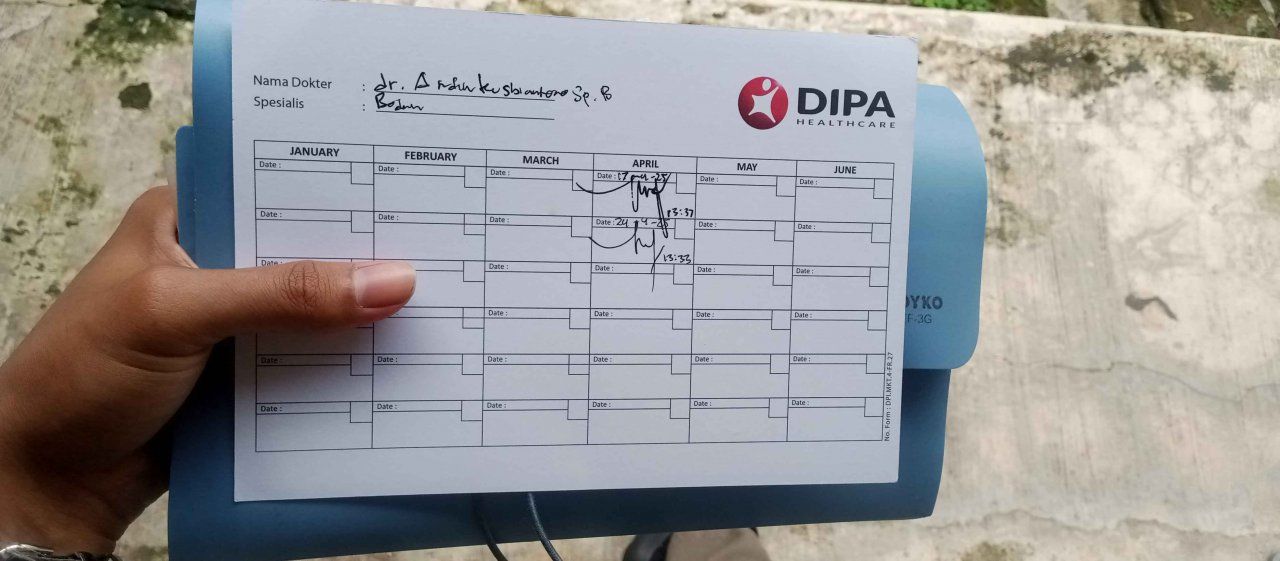 Nama Dokter : dr. Sp. B
Spesialis : Bedah
DIPA
HEALTHCARE
JANUARY FEBRUARY MARCH APRIL MAY JUNE
Date : Date : Date : Date : 17-4-25 Date : Date :
13:37
Date : Date : Date : Date : 24-4-25 Date : Date :
13:33
Date : Date : Date : Date : Date : Date :
Date : Date : Date : Date :
Date : Date : Date : Date : Date : Date :
Date : Date : Date : Date : Date : Date :
No. Form : DPI.MKT.4-FR.27
OYKO
F-3G